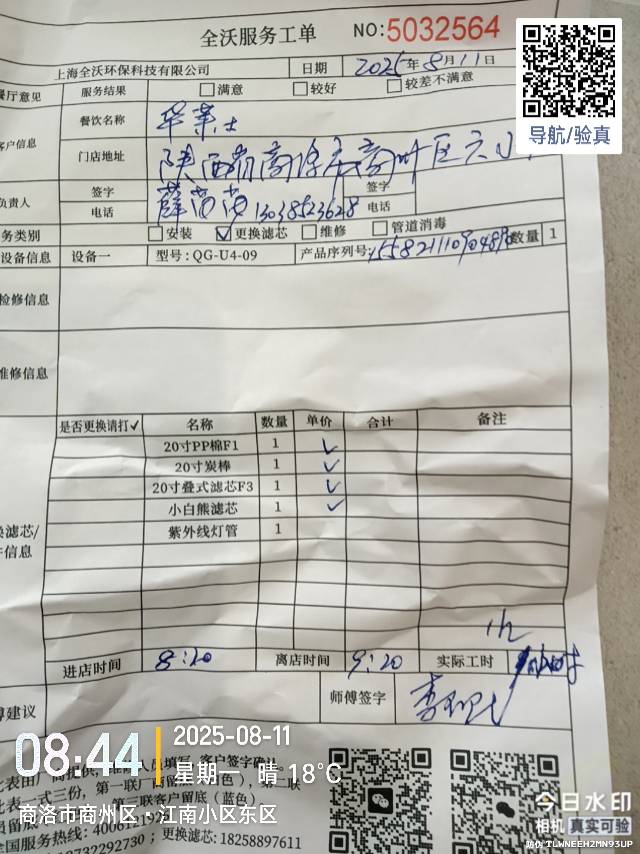 全沃服务工单
NO:5032564
上海全沃环保科技有限公司 日期 2025年8月11日
餐厅意见 服务结果 满意 较好 较差不满意
导航/验真
客户信息 餐饮名称 华莱士
门店地址 陕西省商洛市商州区
负责人 签字 签字
电话 13038523628 电话
务类别 安装 更换滤芯 维修 管道消毒
设备信息 设备一 型号:QG-U4-09 产品序列号: 数量 1
检修信息
维修信息
是否更换请打✓ 名称 数量 单价 合计 备注
20寸PP棉F1 1 ✓
20寸炭棒 1 ✓
20寸叠式滤芯F3 1 ✓
小白熊滤芯 1 ✓
紫外线灯管 1
滤芯/
信息
1h
进店时间 8:20 离店时间 9:20 实际工时
建议 师傅签字
08:44
2025-08-11
星期一 晴 18°C
商洛市商州区·江南小区东区
更换滤芯: 18258897611
今日水印
相机 真实可验
防伪 TLWNEEH2MN93UP